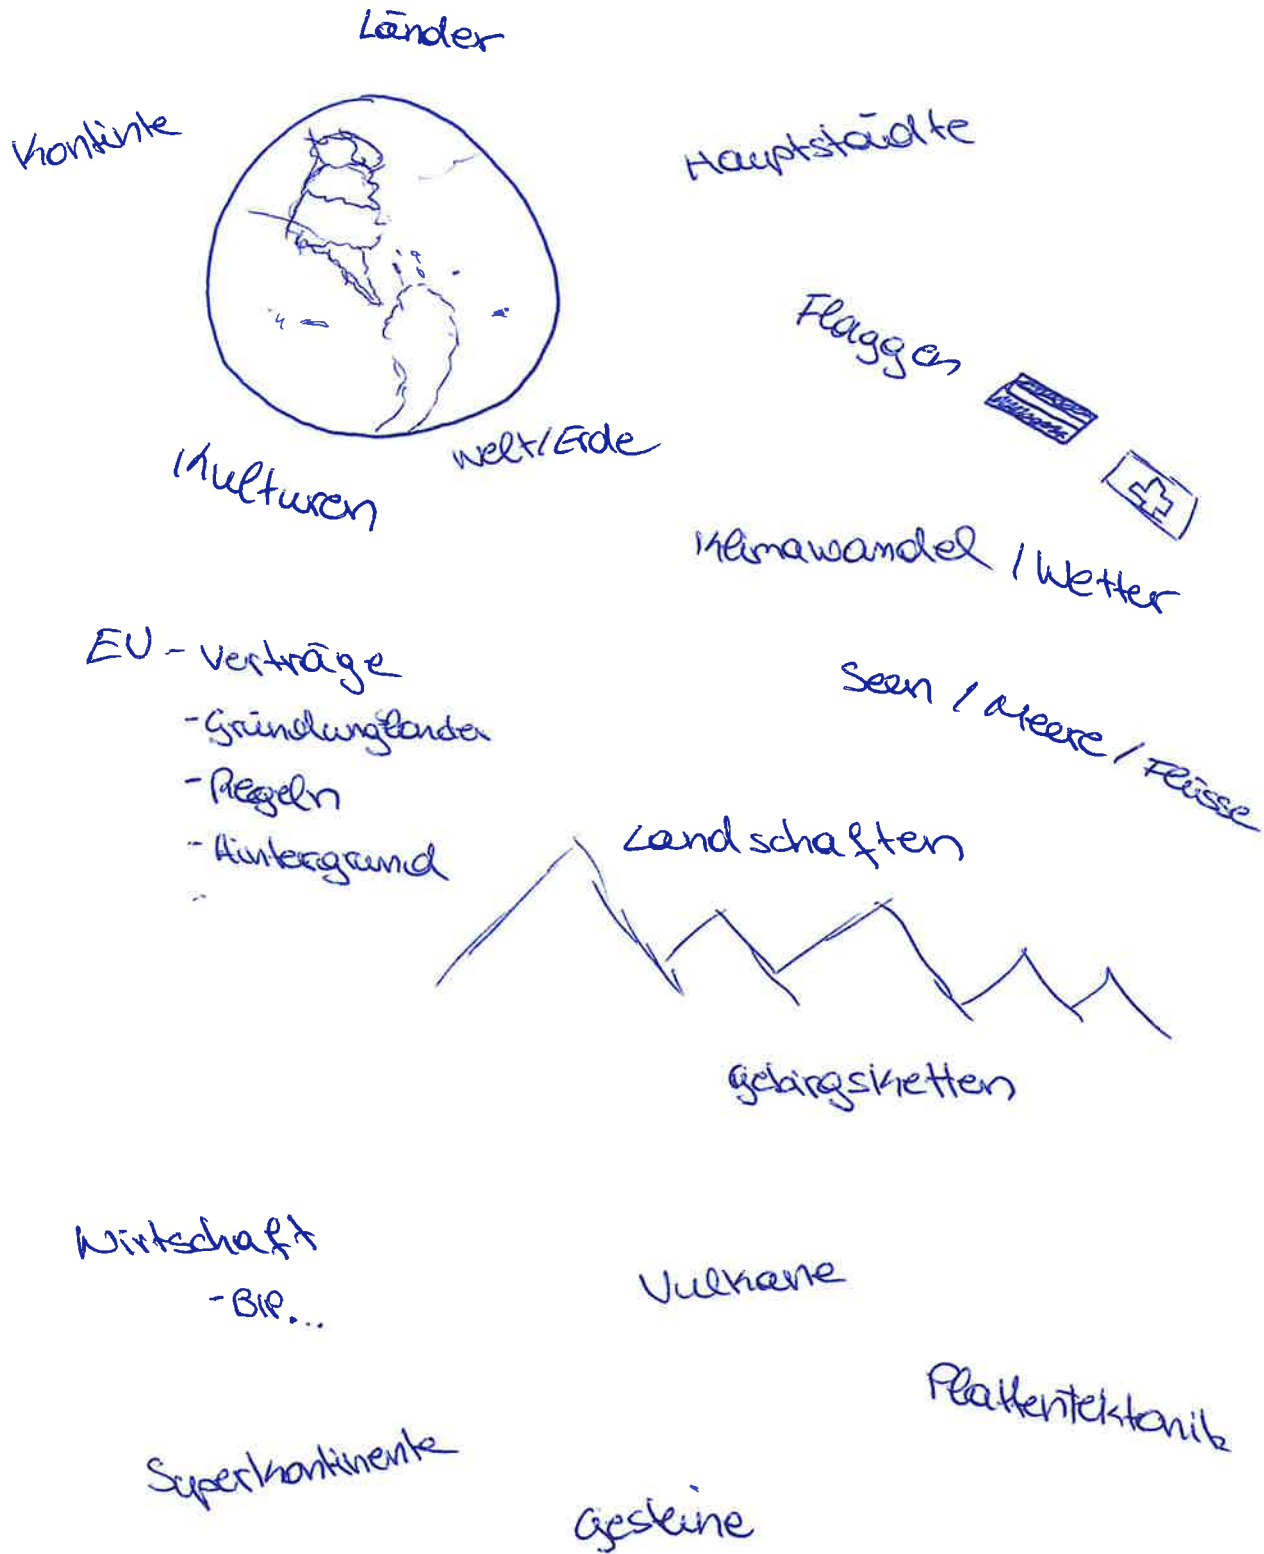 Länder
Kontinte
Hauptstädte
Flaggen
Welt/Erde
Kulturen
Klimawandel / Wetter
EU - Verträge
- Gründungländer
- Regeln
- Hintergrund
Seen / Meere / Flüsse
Landschaften
Gebirgsketten
Wirtschaft
- BIP...
Vulkane
Plattentektonik
Superkontinente
Gesteine